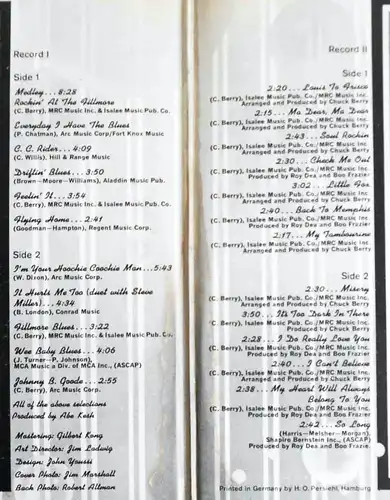 Record I
Side 1
Medley...8:28
Rockin' At The Fillmore
(C. Berry), MRC Music Inc. & Isalee Music Pub. Co.
Everyday I Have The Blues
(P. Chatman), Arc Music Corp/Fort Knox Music
C. C. Rider...4:09
(C. Willis), Hill & Range Music
Driftin' Blues...3:50
(Brown—Moore—Williams), Aladdin Music Pub.
Feelin' It...3:54
(C. Berry), MRC Music Inc. & Isalee Music Pub. Co.
Flying Home...2:41
(Goodman—Hampton), Regent Music Corp.
Side 2
I'm Your Hoochie Coochie Man...5:43
(W. Dixon), Arc Music Corp.
It Hurts Me Too (duet with Steve
Miller)...4:34
(B. London), Conrad Music
Fillmore Blues...3:22
(C. Berry), MRC Music Inc. & Isalee Music Pub. Co.
Wee Baby Blues...4:06
(J. Turner—P. Johnson),
MCA Music a Div. of MCA Inc., (ASCAP)
Johnny B. Goode...2:55
(C. Berry), Arc Music Corp.
All of the above selections
Produced by Abe Kesh
Mastering: Gilbert Kong
Art Director: Jim Ladwig
Design: John Youssi
Cover Photo: Jim Marshall
Back Photo: Robert Altman
Record II
Side 1
2:20...Louis To Frisco
(C. Berry), Isalee Music Pub. Co./MRC Music Inc.
Arranged and Produced by Chuck Berry
2:15...Ma Dear, Ma Dear
(C. Berry), Isalee Music Pub. Co./MRC Music Inc.
Arranged and Produced by Chuck Berry
2:43...Soul Rockin'
(C. Berry), Isalee Music Pub. Co./MRC Music Inc.
Arranged and Produced by Chuck Berry
2:30...Check Me Out
(C. Berry), Isalee Music Pub. Co./MRC Music Inc.
Produced by Roy Dea and Boo Frazier
3:02...Little Fox
(C. Berry), Isalee Music Pub. Co./MRC Music Inc.
Arranged and Produced by Chuck Berry
2:40...Back To Memphis
(C. Berry), Isalee Music Pub. Co./MRC Music Inc.
Produced by Roy Dea and Boo Frazier
2:17...My Tambourine
(C. Berry), Isalee Music Pub. Co./MRC Music Inc.
Arranged and Produced by Chuck Berry
Side 2
2:30...Misery
(C. Berry), Isalee Music Pub. Co./MRC Music Inc.
Produced by Roy Dea and Boo Frazier
3:50...It's Too Dark In There
(C. Berry), Isalee Music Pub. Co./MRC Music Inc.
Arranged and Produced by Chuck Berry
2:28...I Do Really Love You
(C. Berry), Isalee Music Pub. Co./MRC Music Inc.
Produced by Roy Dea and Boo Frazier
2:40...I Can't Believe
(C. Berry), Isalee Music Pub. Co./MRC Music Inc.
Produced by Roy Dea and Boo Frazier
2:38...My Heart Will Always
Belong To You
(C. Berry), Isalee Music Pub. Co./MRC Music Inc.
Arranged and Produced by Chuck Berry
2:42...So Long
(Harris—Melsher—Morgan),
Shapiro Bernstein Inc., (ASCAP)
Produced by Roy Dea and Boo Frazier
Printed in Germany by H. O. Persiehl, Hamburg